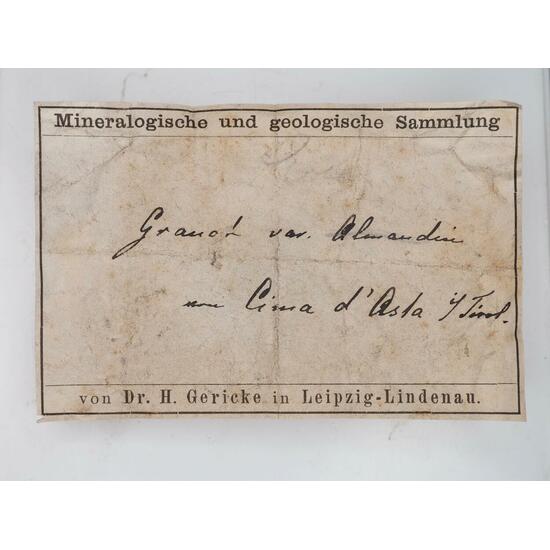 Mineralogische und geologische Sammlung
Granat var. Almandin
von Cima d'Asta i/Tirol.
von Dr. H. Gericke in Leipzig-Lindenau.